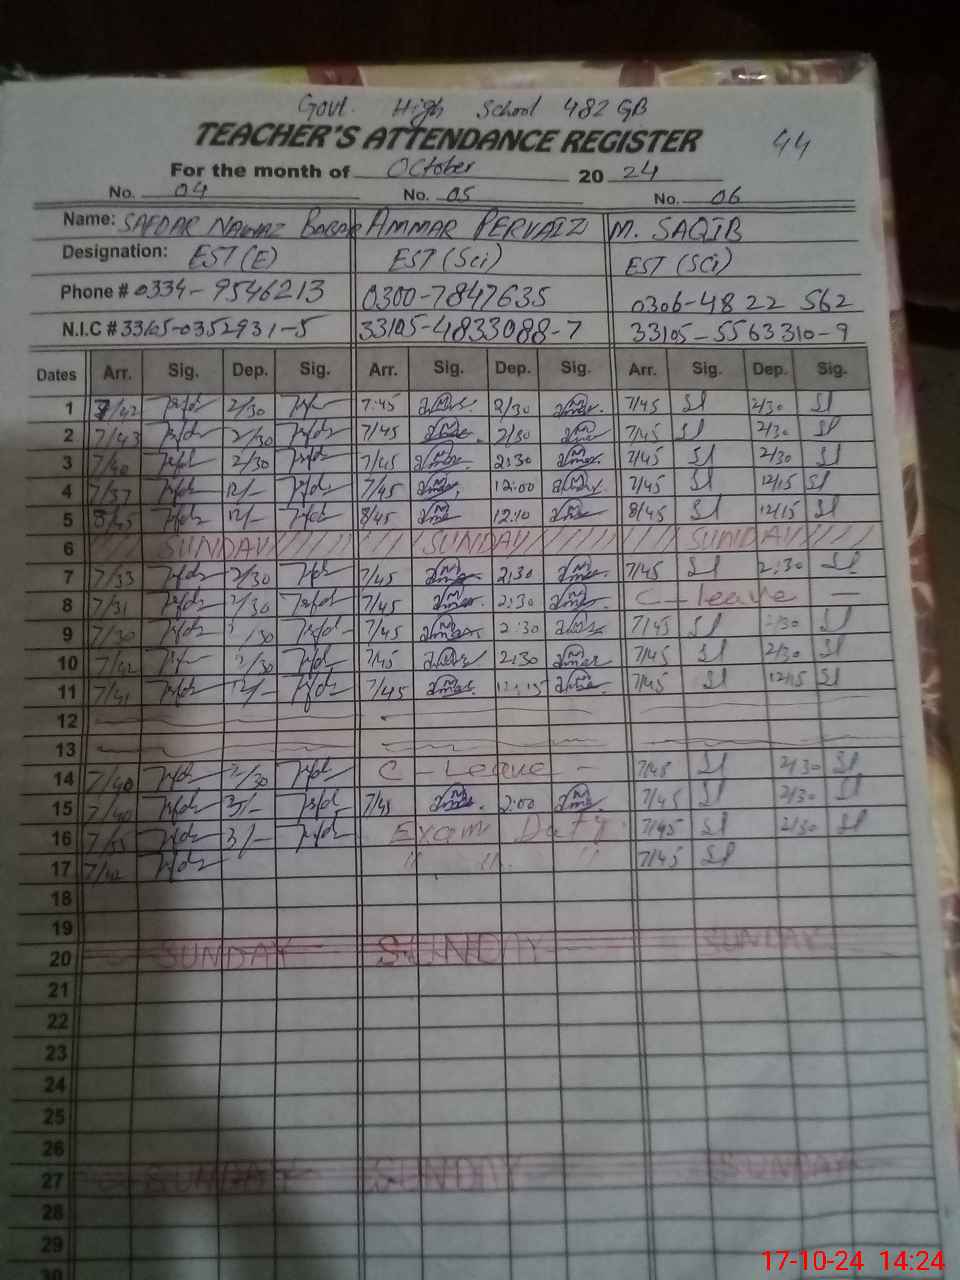 Govt. High School 482 GB
TEACHER'S ATTENDANCE REGISTER 44
For the month of October 20 24
No. 04 No. 05 No. 06
Name: SAFDAR NAWAZ BABAR AMMAR PERVAIZ M. SAQIB
Designation: EST (E) EST (Sci) EST (SCi)
Phone # 0334-9546213 0300-7847635 0306-48 22 562
N.I.C # 33105-0352931-5 33105-4833088-7 33105-5563310-9
Dates Arr. Sig. Dep. Sig. Arr. Sig. Dep. Sig. Arr. Sig. Dep. Sig.
1 7/42 2/30 7:45 2/30 7/45 2/30
2 7/43 2/30 7/45 2/30 7/45 2/30
3 7/40 2/30 7/45 2:30 7/45 2/30
4 7/37 12/- 7/45 12:00 7/45 12/15
5 8/45 12/- 8/45 12:10 8/45 12/15
6 SUNDAY SUNDAY SUNDAY
7 7/33 2/30 7/45 2:30 7/45 2:30
8 7/31 2/30 7/45 2:30 C-leave
9 7/30 /30 7/45 2:30 7/45 2/30
10 7/42 2/30 7/45 2:30 7/45 2/30
11 7/41 12/- 7/45 12:15 7/45 12/15
12
13
14 7/40 2/30 C-Leave - 7/45 2/30
15 7/40 3/- 7/45 2:00 7/45 2/30
16 3/- Exam Duty 7/45 2/30
17 7/42 " " " 7/45
18
19
20 SUNDAY SUNDAY SUNDAY
21
22
23
24
25
26
27 SUNDAY SUNDAY SUNDAY
28
29
30
17-10-24 14:24